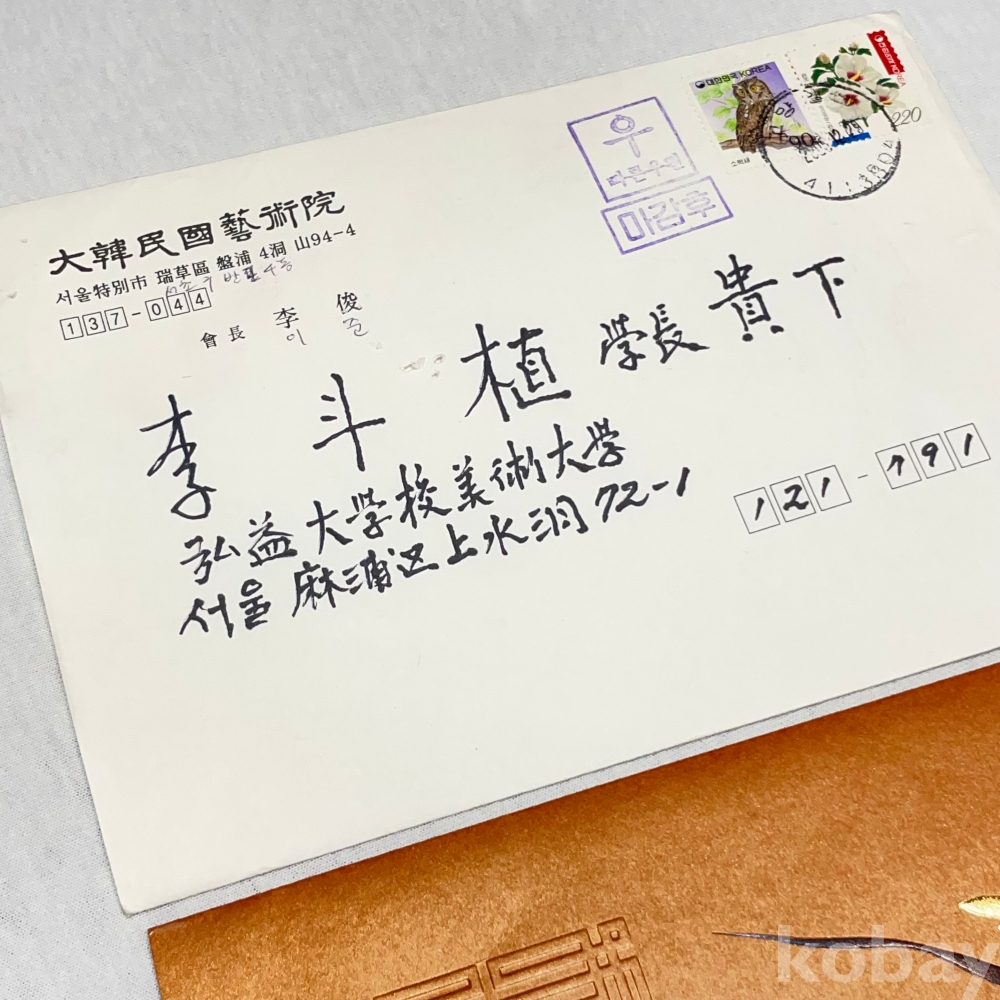 大韓民國藝術院
서울特別市 瑞草區 盤浦 4洞 山94-4
서초구 반포4동
137-044
會長 李 俊
이 준
대한민국 KOREA
소쩍새
대한민국 KOREA
220
우
마감후
李 斗 植 學長 貴下
弘益大学校美術大学
서울 麻浦区上水洞 72-1
121-791
kobay